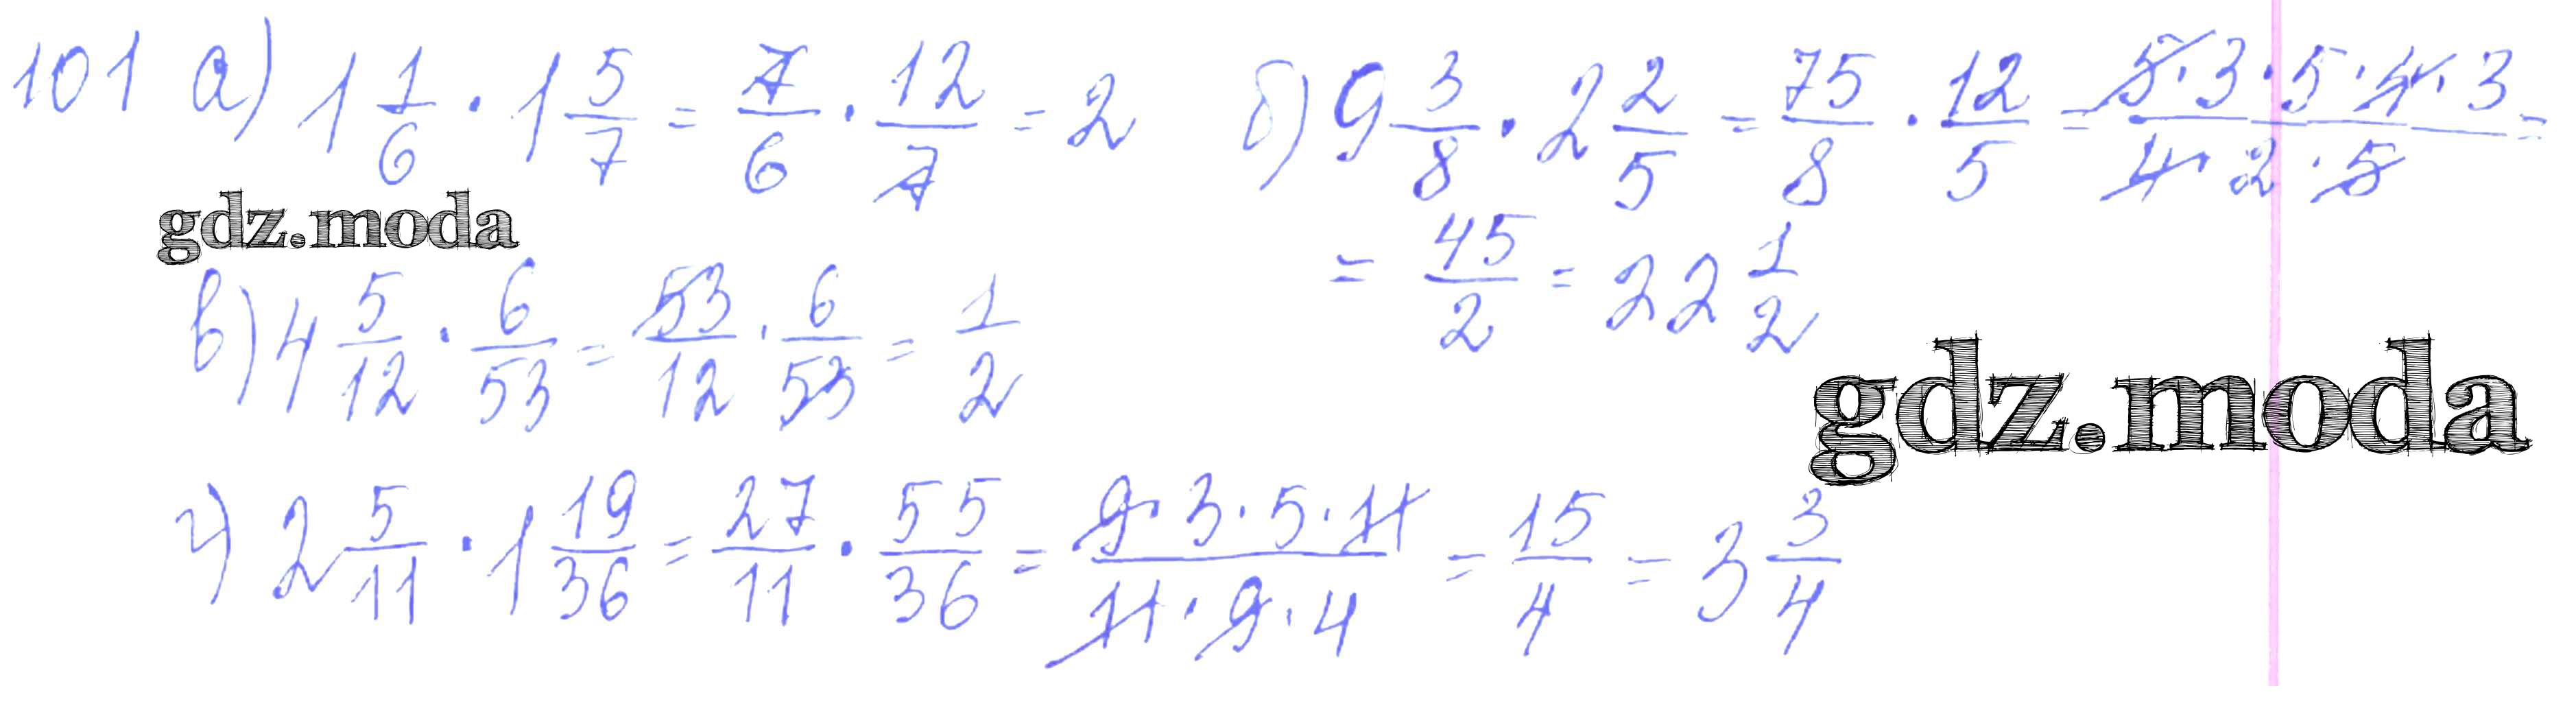 101 а) 1 1/6 · 1 5/7 = 7/6 · 12/7 = 2 б) 9 3/8 · 2 2/5 = 75/8 · 12/5 = 5·3·5·4·3/4·2·5 =
= 45/2 = 22 1/2
gdz.moda
в) 4 5/12 · 6/53 = 53/12 · 6/53 = 1/2
gdz.moda
г) 2 5/11 · 1 19/36 = 27/11 · 55/36 = 9·3·5·11/11·9·4 = 15/4 = 3 3/4